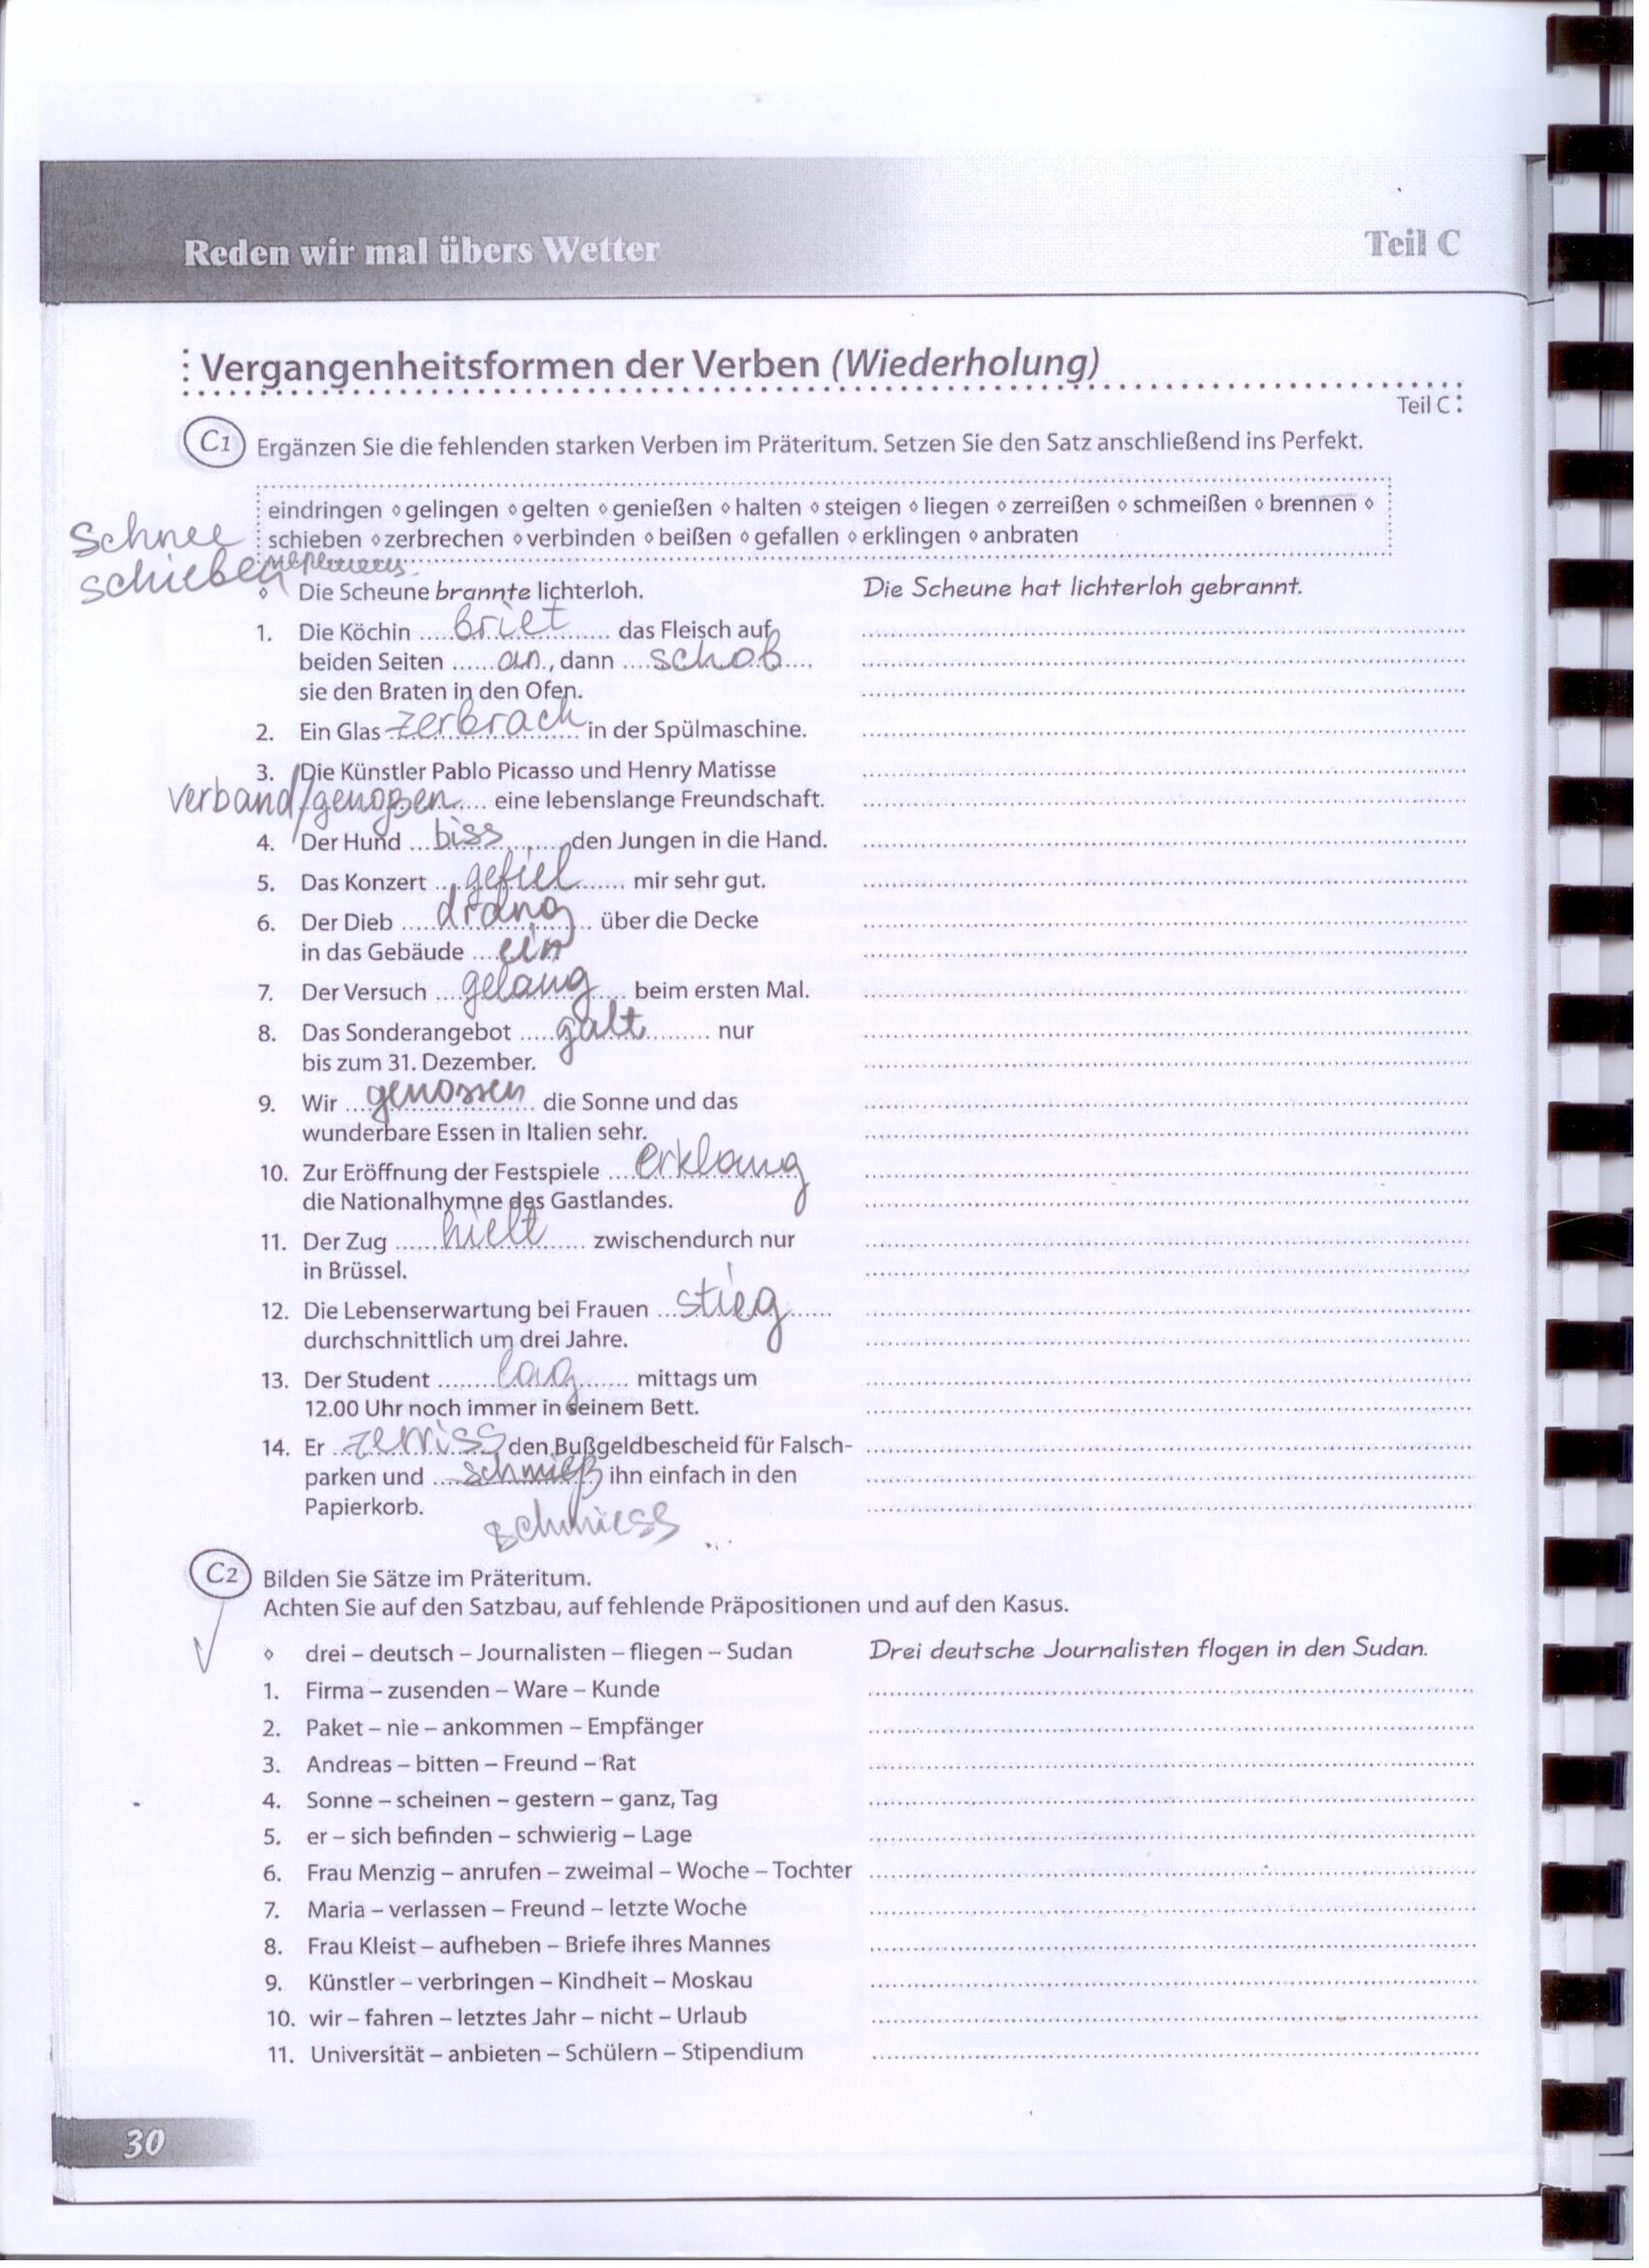 Reden wir mal übers Wetter Teil C
Vergangenheitsformen der Verben (Wiederholung)
Teil C
C1 Ergänzen Sie die fehlenden starken Verben im Präteritum. Setzen Sie den Satz anschließend ins Perfekt.
eindringen ⋄ gelingen ⋄ gelten ⋄ genießen ⋄ halten ⋄ steigen ⋄ liegen ⋄ zerreißen ⋄ schmeißen ⋄ brennen ⋄
Schnee schieben ⋄ zerbrechen ⋄ verbinden ⋄ beißen ⋄ gefallen ⋄ erklingen ⋄ anbraten
schieben
⋄ Die Scheune brannte lichterloh. Die Scheune hat lichterloh gebrannt.
1. Die Köchin briet das Fleisch auf
beiden Seiten an, dann schob
sie den Braten in den Ofen.
2. Ein Glas zerbrach in der Spülmaschine.
3. Die Künstler Pablo Picasso und Henry Matisse
verband/genoßen eine lebenslange Freundschaft.
4. Der Hund biss den Jungen in die Hand.
5. Das Konzert gefiel mir sehr gut.
6. Der Dieb drang über die Decke
in das Gebäude ein
7. Der Versuch gelang beim ersten Mal.
8. Das Sonderangebot galt nur
bis zum 31. Dezember.
9. Wir genossen die Sonne und das
wunderbare Essen in Italien sehr.
10. Zur Eröffnung der Festspiele erklang
die Nationalhymne des Gastlandes.
11. Der Zug hielt zwischendurch nur
in Brüssel.
12. Die Lebenserwartung bei Frauen stieg
durchschnittlich um drei Jahre.
13. Der Student lag mittags um
12.00 Uhr noch immer in seinem Bett.
14. Er zerriss den Bußgeldbescheid für Falsch-
parken und schmieß ihn einfach in den
Papierkorb.
schmiess
C2 Bilden Sie Sätze im Präteritum.
Achten Sie auf den Satzbau, auf fehlende Präpositionen und auf den Kasus.
⋄ drei – deutsch – Journalisten – fliegen – Sudan Drei deutsche Journalisten flogen in den Sudan.
1. Firma – zusenden – Ware – Kunde
2. Paket – nie – ankommen – Empfänger
3. Andreas – bitten – Freund – Rat
4. Sonne – scheinen – gestern – ganz, Tag
5. er – sich befinden – schwierig – Lage
6. Frau Menzig – anrufen – zweimal – Woche – Tochter
7. Maria – verlassen – Freund – letzte Woche
8. Frau Kleist – aufheben – Briefe ihres Mannes
9. Künstler – verbringen – Kindheit – Moskau
10. wir – fahren – letztes Jahr – nicht – Urlaub
11. Universität – anbieten – Schülern – Stipendium
30